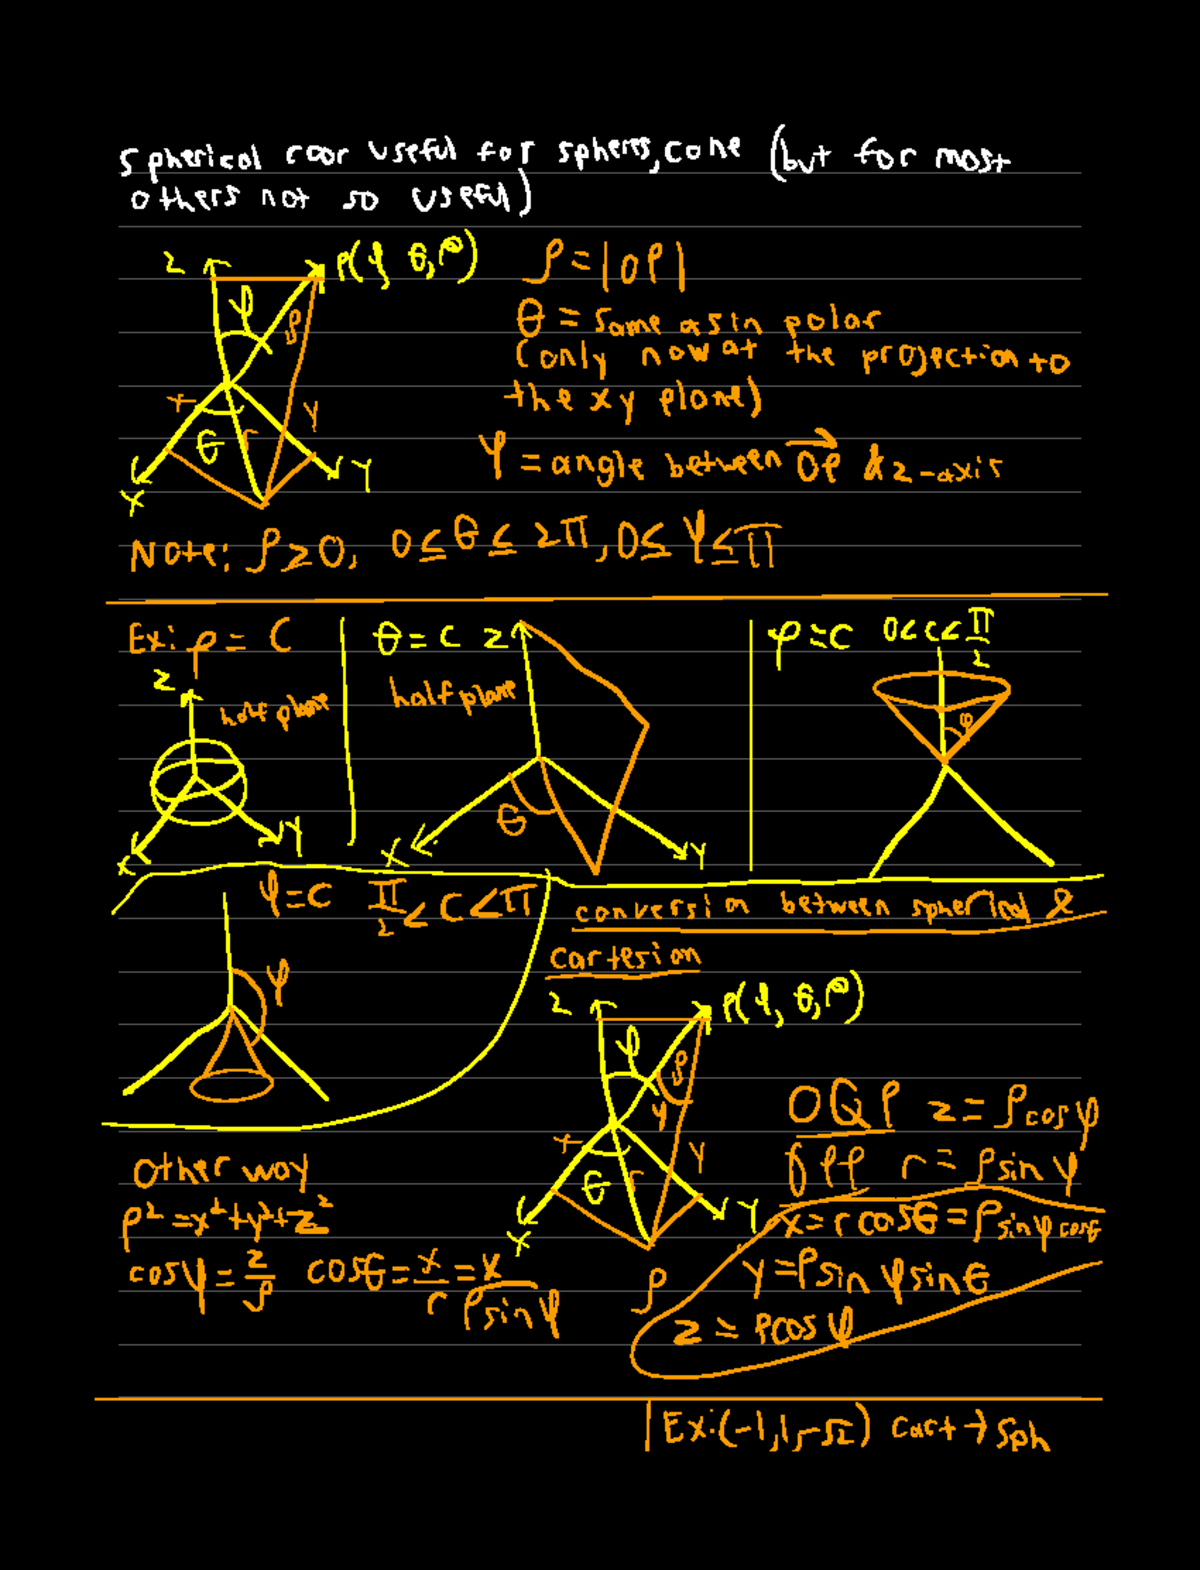 Spherical coor useful for spheres, cone (but for most
others not so useful)
Z P(φ, θ, ρ) ρ = |OP|
φ ρ θ = same as in polar
(only now at the projection to
x y the xy plane)
θ r φ = angle between OP⃗ & z-axis
X Y
Note: ρ ≥ 0, 0 ≤ θ ≤ 2π, 0 ≤ φ ≤ π
Ex: ρ = C
Z
half plane
X Y
θ = C Z
half plane
θ
X Y
φ = C 0 < C < π/2
φ
φ = C π/2 < C < π
φ
conversion between spherical &
cartesian
Z P(φ, θ, ρ)
φ ρ
φ
x y
θ r
X Y
OQP z = ρcosφ
r = ρsinφ
x = r cosθ = ρsinφ cosθ
y = ρsinφsinθ
z = ρcosφ
ρ
Other way
ρ² = x² + y² + z²
cosφ = z/ρ cosθ = x/r = x/ρsinφ
Ex: (-1, 1, -√2) cart → sph